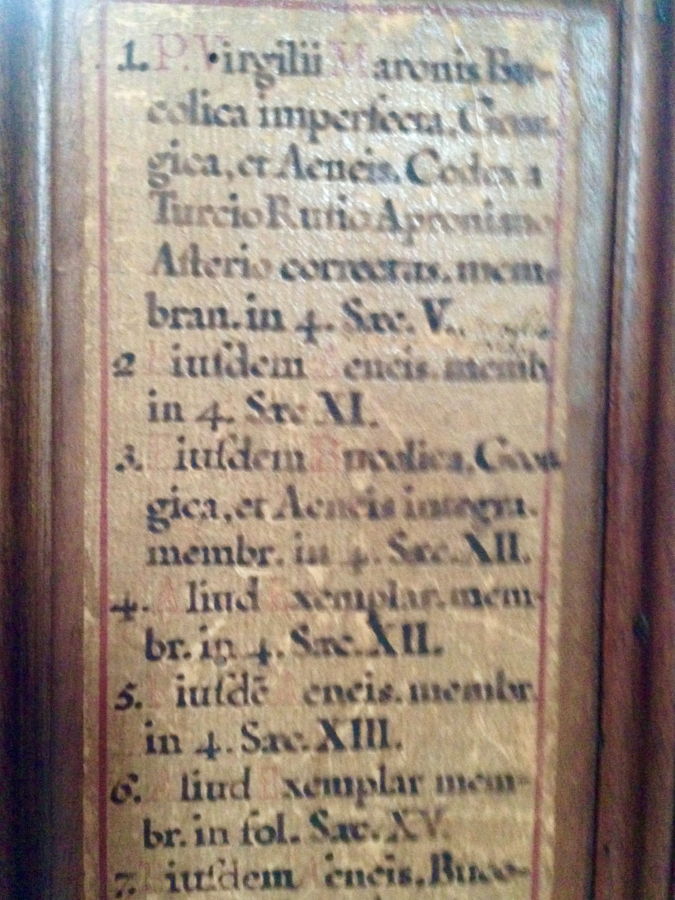 1. P. Virgilii Maronis Bu-
colica imperfecta. Geor-
gica, et Aeneis. Codex a
Turcio Rufio Aproniano
Asterio correctus. mem-
bran. in 4. Sæc. V.
2 Eiusdem Aeneis. memb.
in 4. Sæc XI.
3. Eiusdem Bucolica, Geor-
gica, et Aeneis integra.
membr. in 4. Sæc. XII.
4. Aliud Exemplar. mem-
br. in 4. Sæc. XII.
5. Eiusdē Aeneis. membr.
in 4. Sæc. XIII.
6. Aliud Exemplar mem-
br. in fol. Sæc. XV.
7. Eiusdem Aeneis, Buco-